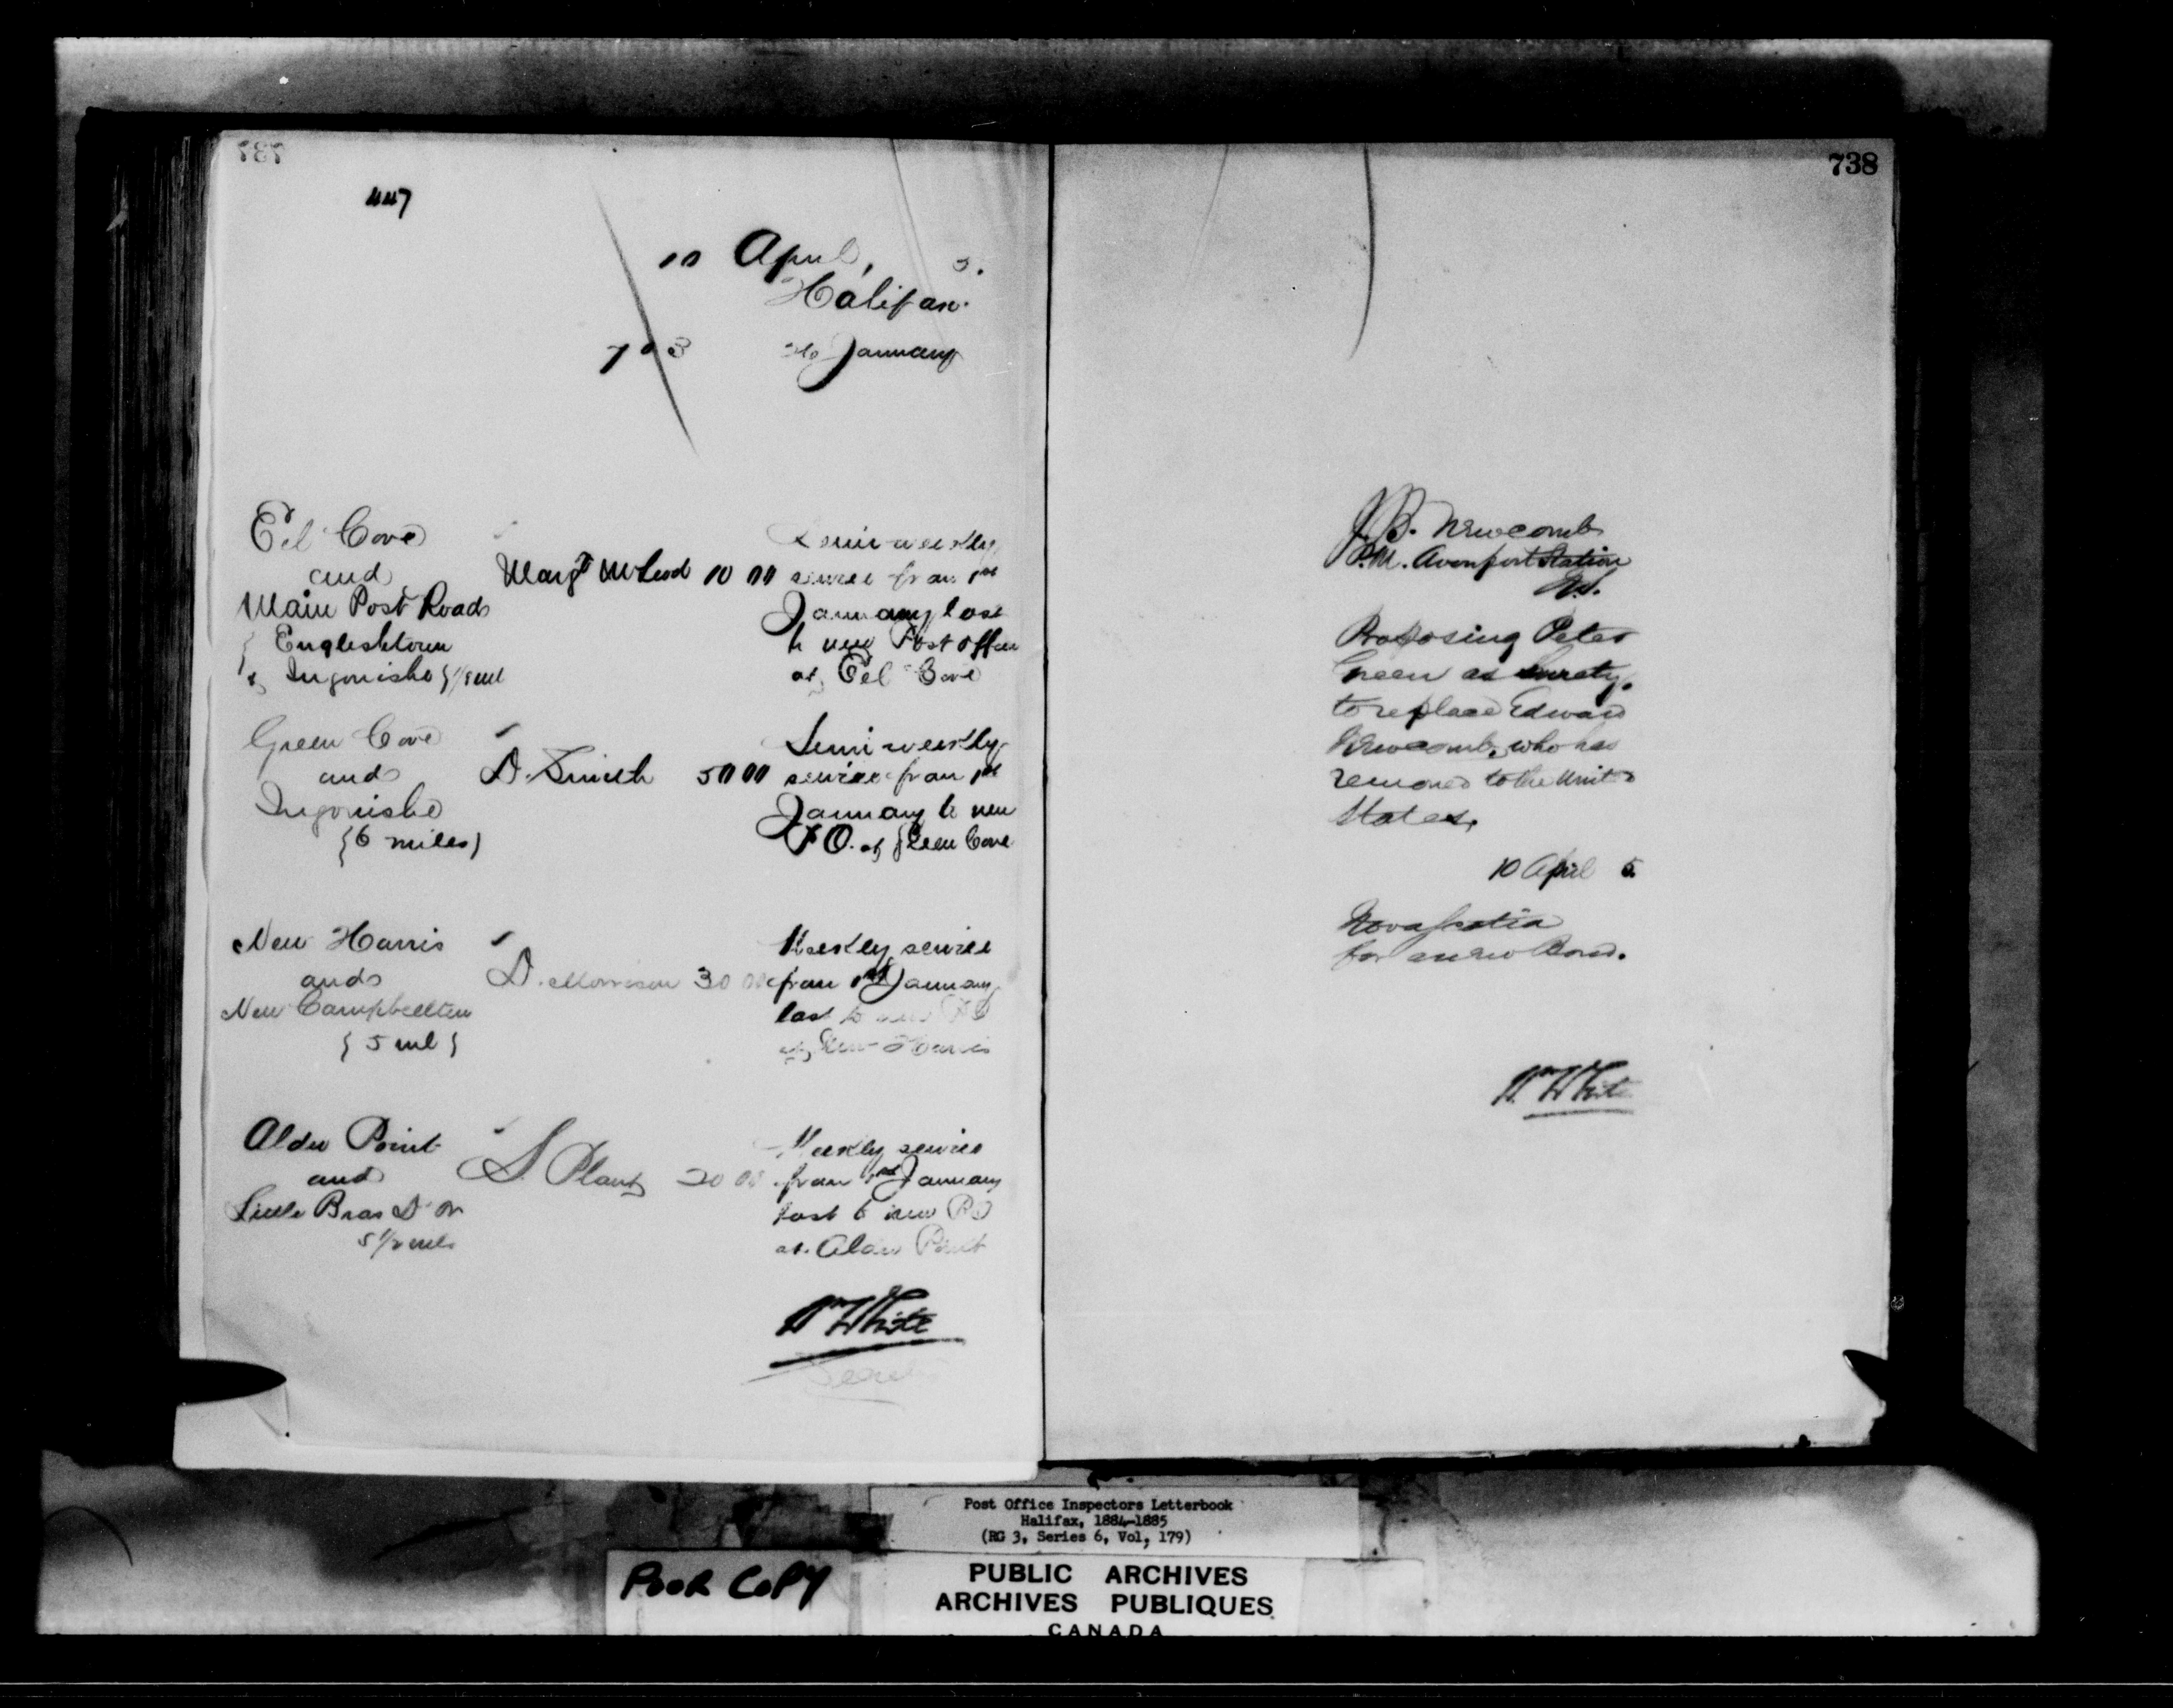 737
447
10 April, 5.
Halifax.
703 January
Eel Cove
and
Main Post Road
{ Englishtown
& Ingonish } 1/8 ml
Margt McLeod 10 00
Semi-weekly
service from 1st
January last
to new Post office
at Eel Cove
Green Cove
and
Ingonishe
{6 miles}
D. Smith 50 00
Semi weekly
service from 1st
January to new
P.O. at Green Cove
New Harris
and
New Campbellton
{ 5 ml }
D. Morrison 30 00
Weekly service
from 1st January
last to new PO
at New Harris
Alder Point
and
Little Bras D'or
5 1/2 mls
S. Plant 20 00
Weekly service
from 1st January
last to new PO
at Alder Point
Wm White
Secret
738
J.B. Newcomb
P.M. Avonport Station
N.S.
Proposing Peter
Green as Surety,
to replace Edward
Newcomb, who has
removed to the United
States.
10 April 5.
Nova Scotia
for a new Bond.
Wm White
Post Office Inspectors Letterbook
Halifax, 1884-1885
(RG 3, Series 6, Vol, 179)
POOR COPY
PUBLIC ARCHIVES
ARCHIVES PUBLIQUES
CANADA